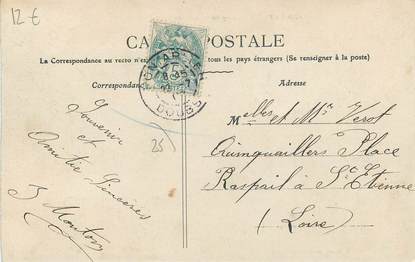 12 €
CARTE POSTALE
La Correspondance au recto n'est pas tous les pays étrangers (Se renseigner à la poste)
Correspondance
Adresse
PONTARLIER
DOUBS
Souvenir
et
Amitié Sincères
J
25
Melles et Mr Verot
Quinquailliers Place
Raspail à St Etienne
(Loire)